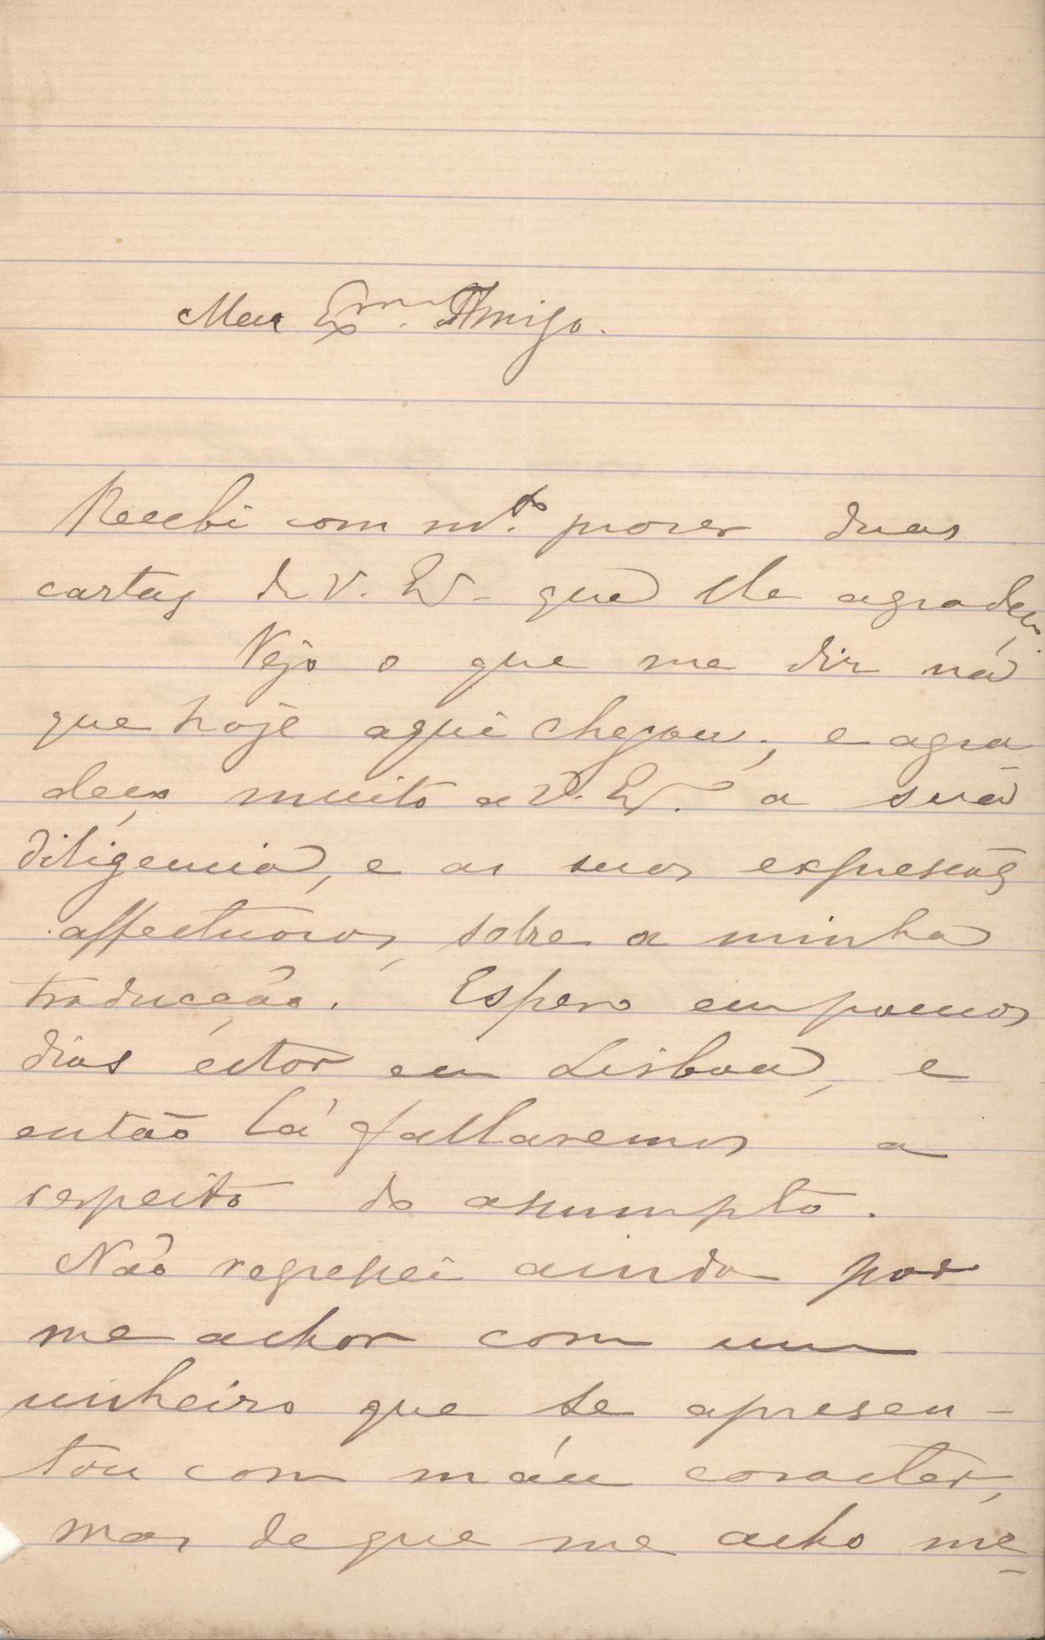 Meu Exmo. Amigo.
Recebi com mto. prazer duas
cartas de V. Ex. que lhe agradeço.
Vejo o que me diz na
que hoje aqui chegou; e agra
deço muito a V. Ex.a a sua
diligencia, e as suas expressões
affectuosas, sobre a minha
traducção. Espero em poucos
dias estar em Lisboa, e
então lá fallaremos a
respeito do assumpto.
Não regressei ainda por
me achar com um
unheiro que se apresen-
tou com máu caracter,
mas de que me acho me-